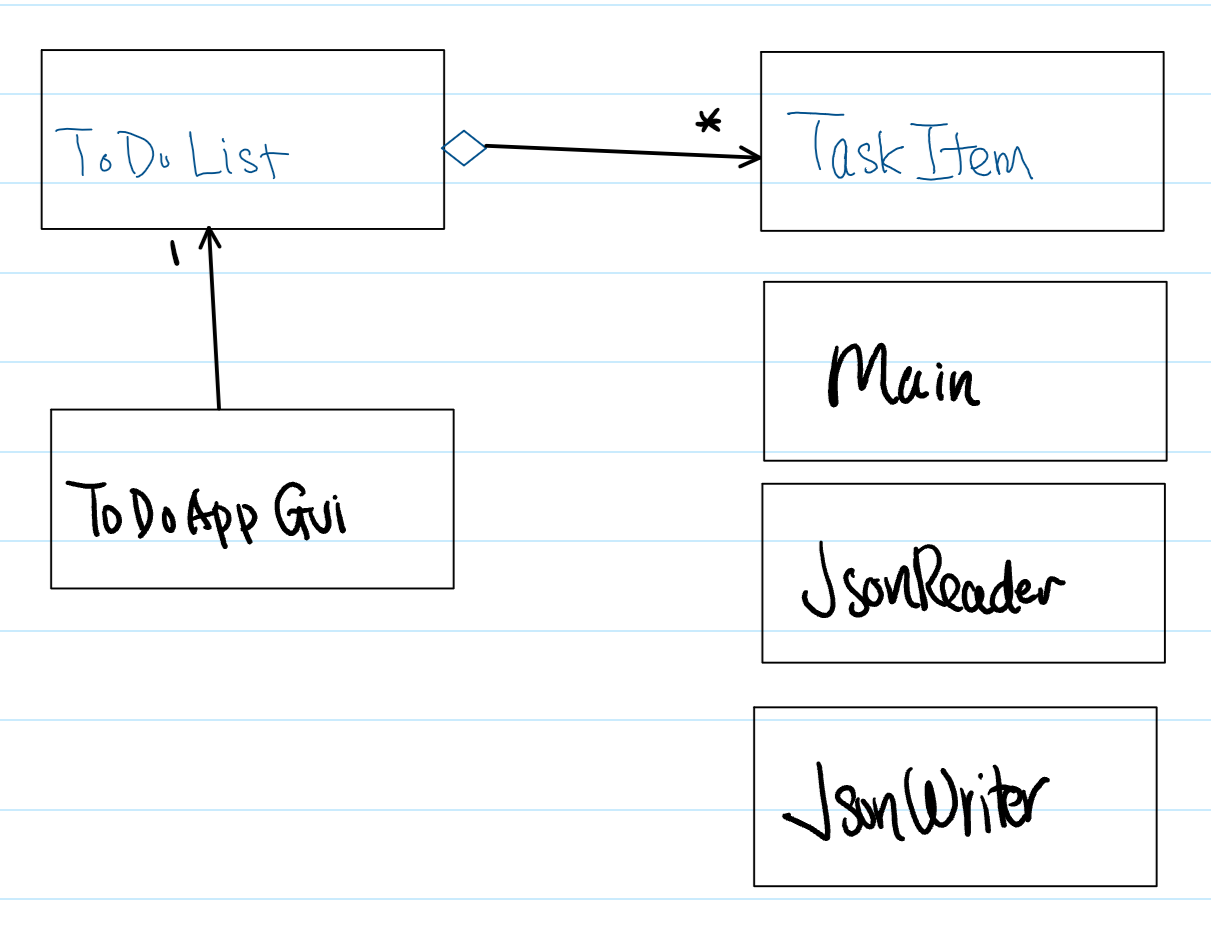 ToDoList
*
TaskItem
1
Main
ToDoAppGui
JsonReader
JsonWriter